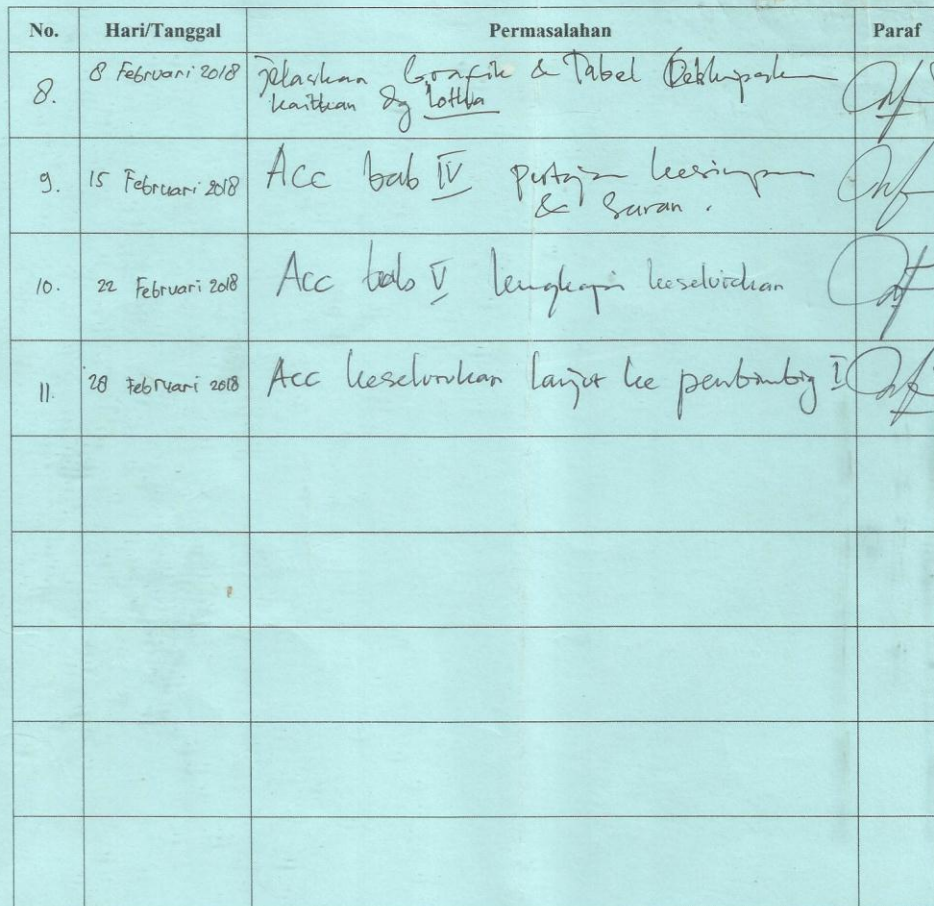 No. Hari/Tanggal Permasalahan Paraf
8. 8 Februari 2018 Jelaskan Grafik & Tabel
kaitkan dg
9. 15 Februari 2018 Acc bab IV
& Saran.
10. 22 Februari 2018 Acc bab V lengkapi keseluruhan
11. 28 Februari 2018 Acc keseluruhan lanjut ke pembimbing I